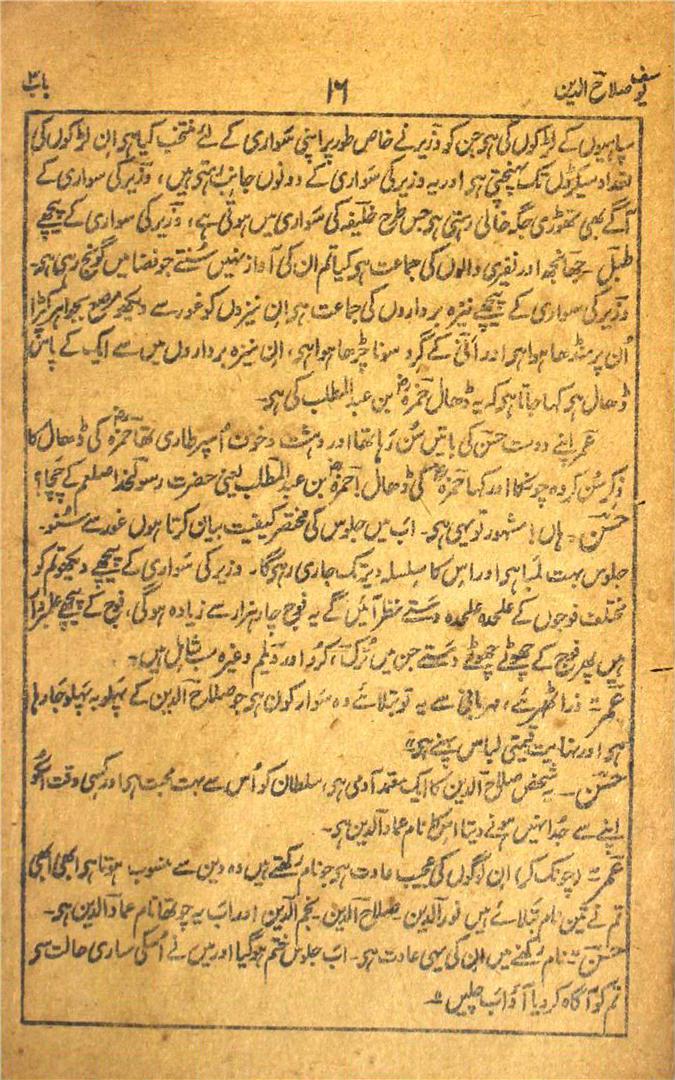 یوسف صلاح الدین ۱۶ باب ۳
سپاہیوں کے لڑکوں کی ہو جن کو وزیر نے خاص طور پر اپنی سواری کے لئے منتخب کیا ہو ان لڑکوں کی
تعداد سیکڑوں تک پہنچتی ہو اور یہ وزیر کی سواری کے دونوں جانب رہتی ہیں، وزیر کی سواری کے
آگے بھی تھوڑی جگہ خالی رہتی ہو جس طرح خلیفہ کی سواری میں ہوتی ہے، وزیر کی سواری کے پیچھے
طبل۔ جھانجھ اور نفیری والوں کی جماعت ہو کیا تم ان کی آواز نہیں سنتے جو فضا میں گونج رہی ہو۔
وزیر کی سواری کے پیچھے نیزہ برداروں کی جماعت ہو ان نیزوں کو غور سے دیکھو مرصع بجواہر کپڑا
اُن پر منڈھا ہوا ہو اور انی کے گرد سونا چڑھا ہوا ہو، ان نیزہ برداروں میں سے ایک کے پاس
ڈھال ہو کہا جاتا ہو کہ یہ ڈھال حمزہؓ بن عبدالمطلب کی ہو۔
عمر اپنے دوست حسن کی باتیں سُن رہا تھا اور دہشت و خوف اُسپر طاری تھا حمزہؓ کی ڈھال کا
ذکر سُن کر وہ چونکا اور کہا حمزہؓ کی ڈھال! حمزہؓ بن عبدالمطلب یعنی حضرت رسول خدا صلعم کے چچا؟
حسن۔ ہاں! مشہور تو یہی ہو۔ اب میں جلوس کی مختصر کیفیت بیان کرتا ہوں غور سے سُنو۔
جلوس بہت لمبا ہو اور اس کا سلسلہ دیر تک جاری رہیگا۔ وزیر کی سواری کے پیچھے دیکھو تم کو
مختلف فوجوں کے علیحدہ علیحدہ دستے نظر آئیں گے یہ فوج چار ہزار سے زیادہ ہو گی، فوج کے پیچھے
ہیں پھر فوج کے چھوٹے چھوٹے دستے جن میں تُرک، کُرد اور دیلم وغیرہ سب شامل ہیں۔
عمر۔ ذرا ٹھیرئے، مہربانی سے یہ تو بتلائے وہ سوار کون ہو جو صلاح الدین کے پہلو بہ پہلو جا رہا
ہو اور نہایت قیمتی لباس پہنے ہو"
حسن۔ یہ شخص صلاح الدین کا ایک معتمد آدمی ہو، سلطان کو اُس سے بہت محبت ہو اور کسی وقت اسکو
اپنے سے جُدا نہیں ہونے دیتا اس کا نام عماد الدین ہو۔
عمر۔ (چونک کر) ان لوگوں کی عجیب عادت ہو جو نام رکھتے ہیں وہ دین سے منسوب ہوتا ہو ابھی ابھی
تم نے تین نام بتلائے ہیں نور الدین۔ صلاح الدین۔ نجم الدین اور اب یہ چوتھا نام عماد الدین ہو۔
حسن۔ نام رکھنے میں ان کی یہی عادت ہو۔ اب جلوس ختم ہو گیا اور میں نے اُسکی ساری حالت سے
تم کو آگاہ کر دیا آؤ اب چلیں"